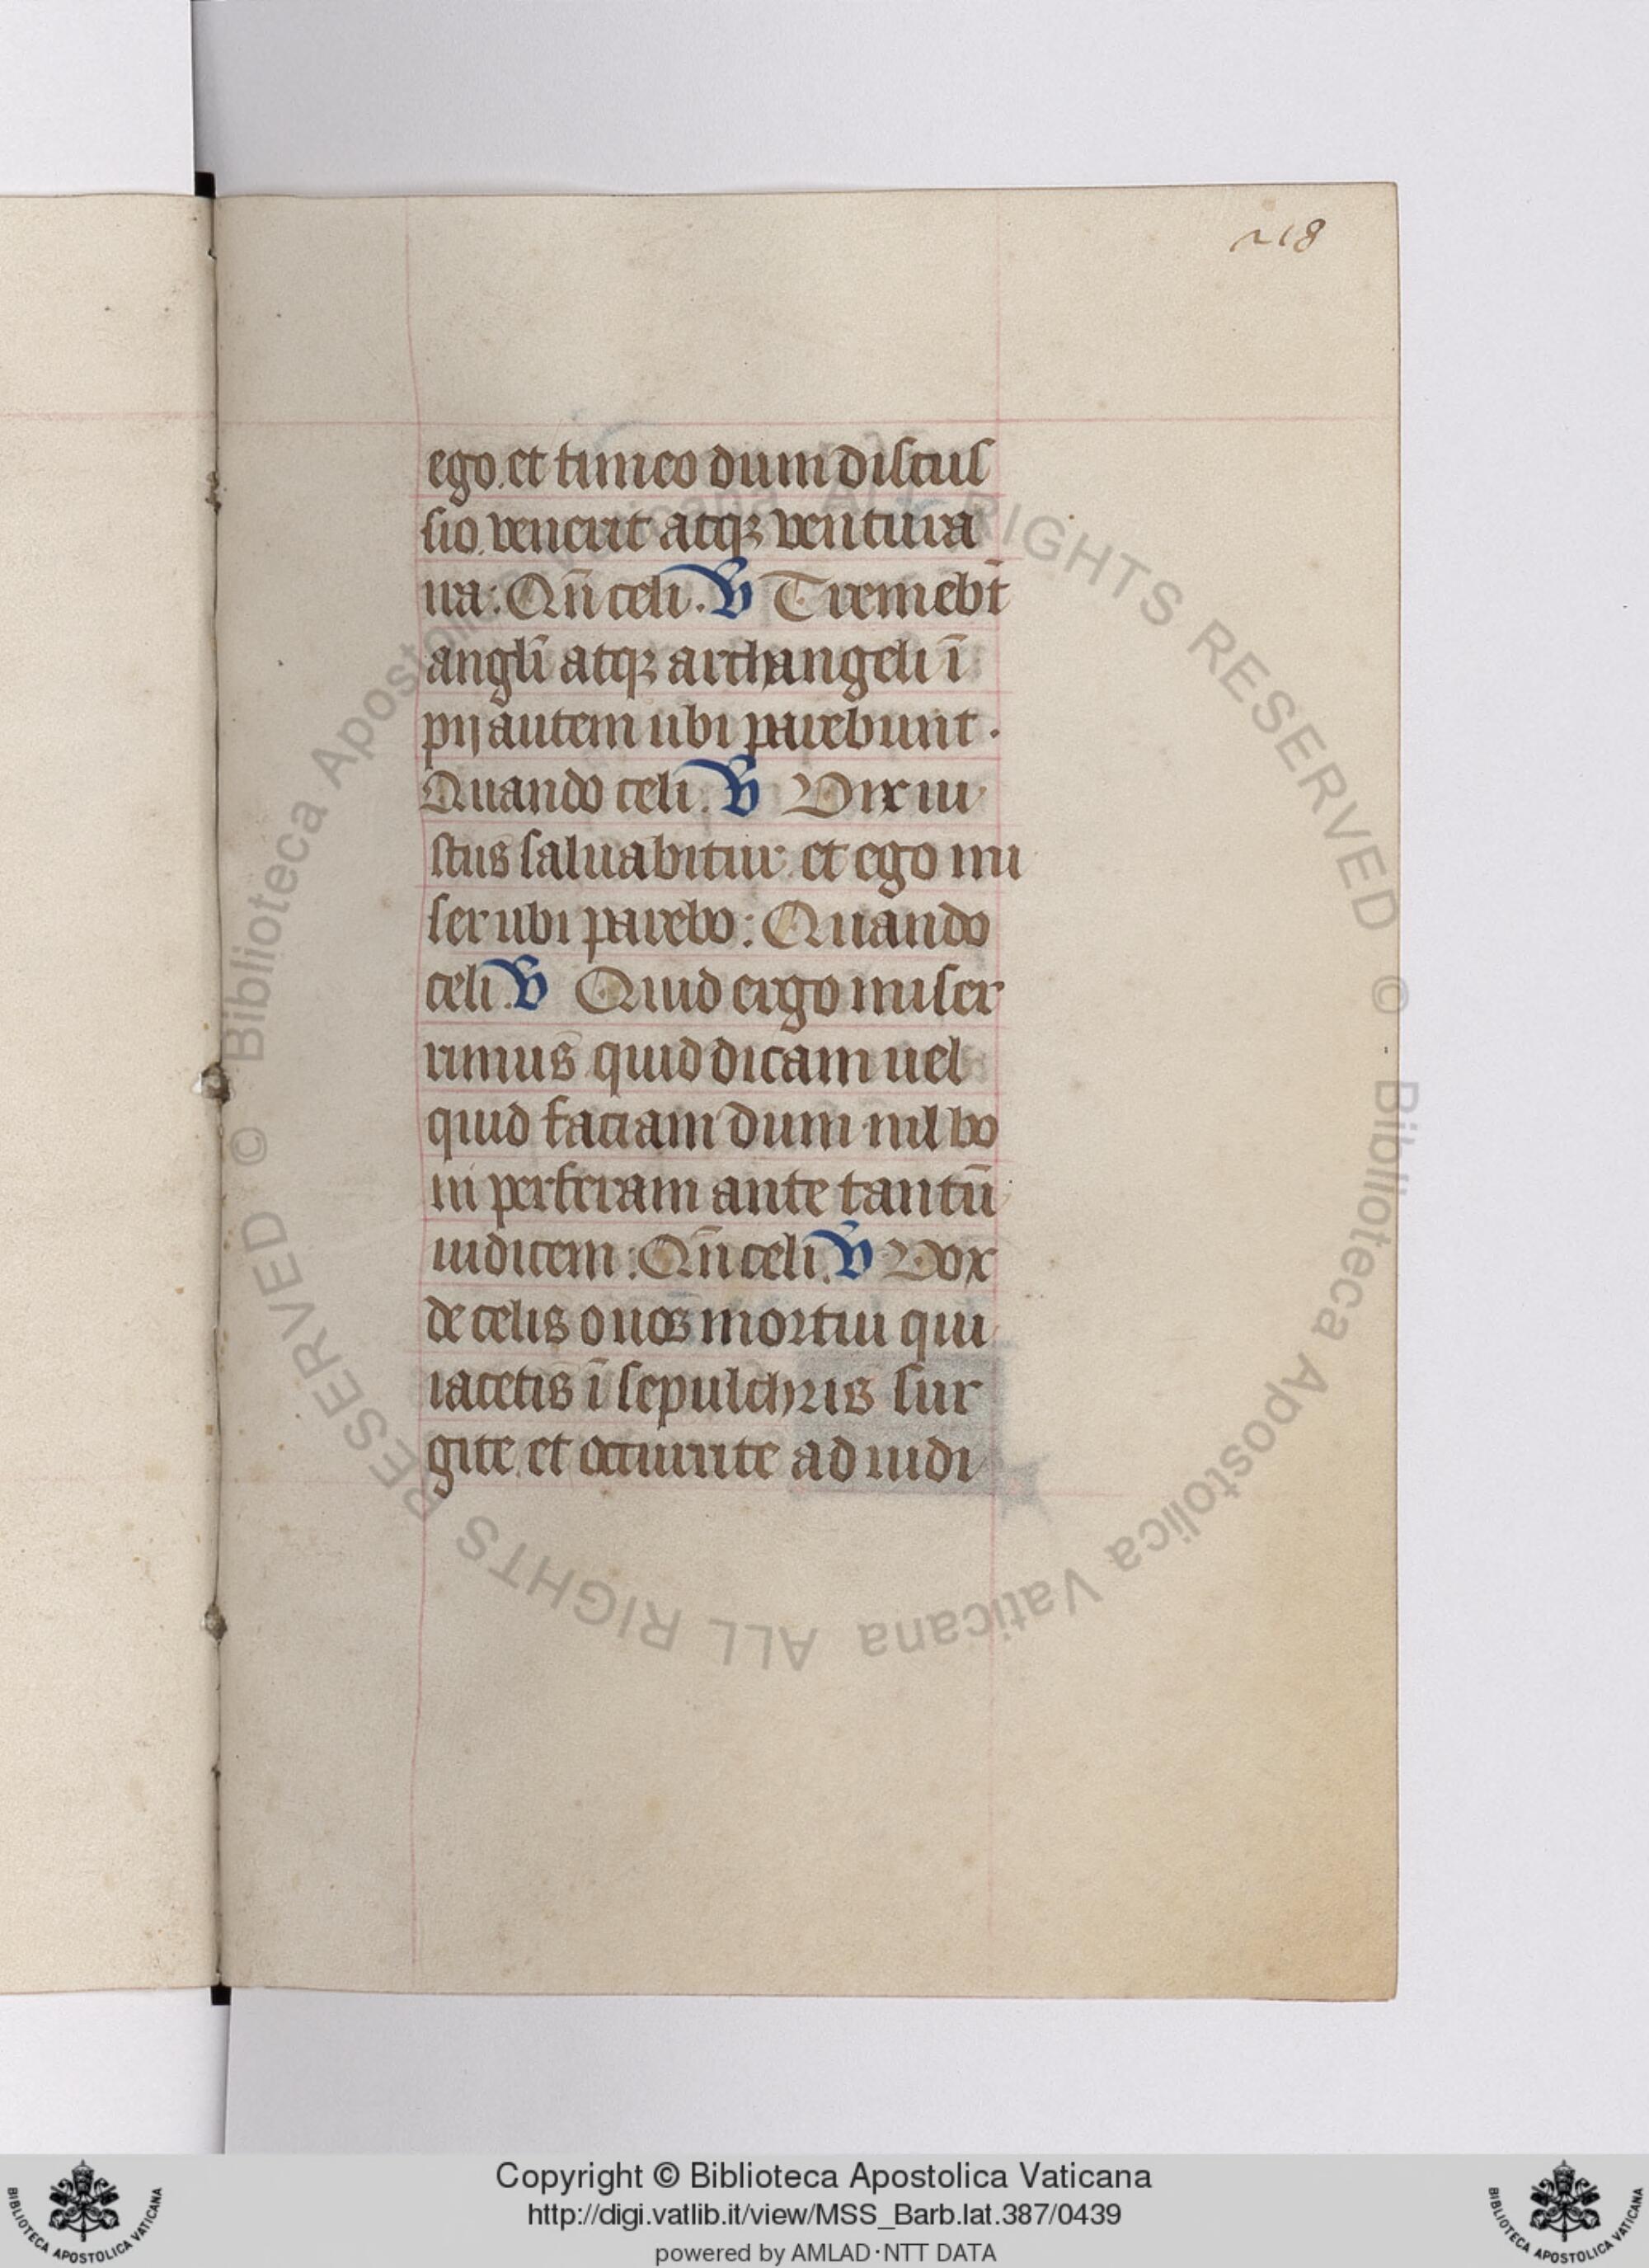 218
ego. et timeo dum discus
sio. venerit atqꝫ ventura
ira: Qn̄ celi. ℣ Tremebt̄
angli̅ atqꝫ archangeli ī
pij autem ubi parebunt.
Quando celi. ℣ Vix iu
stus saluabitur. et ego mi
ser ubi parebo: Quando
celi. ℣ Quid ergo miser
rimus quid dicam uel
quid faciam dum nil bo
ni perferam ante tantū
iudicem: Qn̄ celi. ℣ Vox
de celis o uos mortui qui
iacetis ī sepulchris sur
gite. et occurrite ad iudi
© Biblioteca Apostolica Vaticana ALL RIGHTS RESERVED © Biblioteca Apostolica Vaticana ALL RIGHTS RESERVED
Copyright © Biblioteca Apostolica Vaticana
http://digi.vatlib.it/view/MSS_Barb.lat.387/0439
powered by AMLAD·NTT DATA
BIBLIOTECA APOSTOLICA VATICANA
BIBLIOTECA APOSTOLICA VATICANA